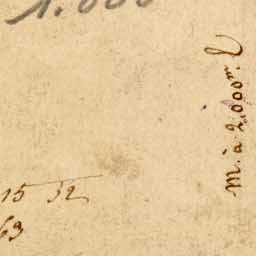 1.000
m. à 2.000 m. l
15 52
63